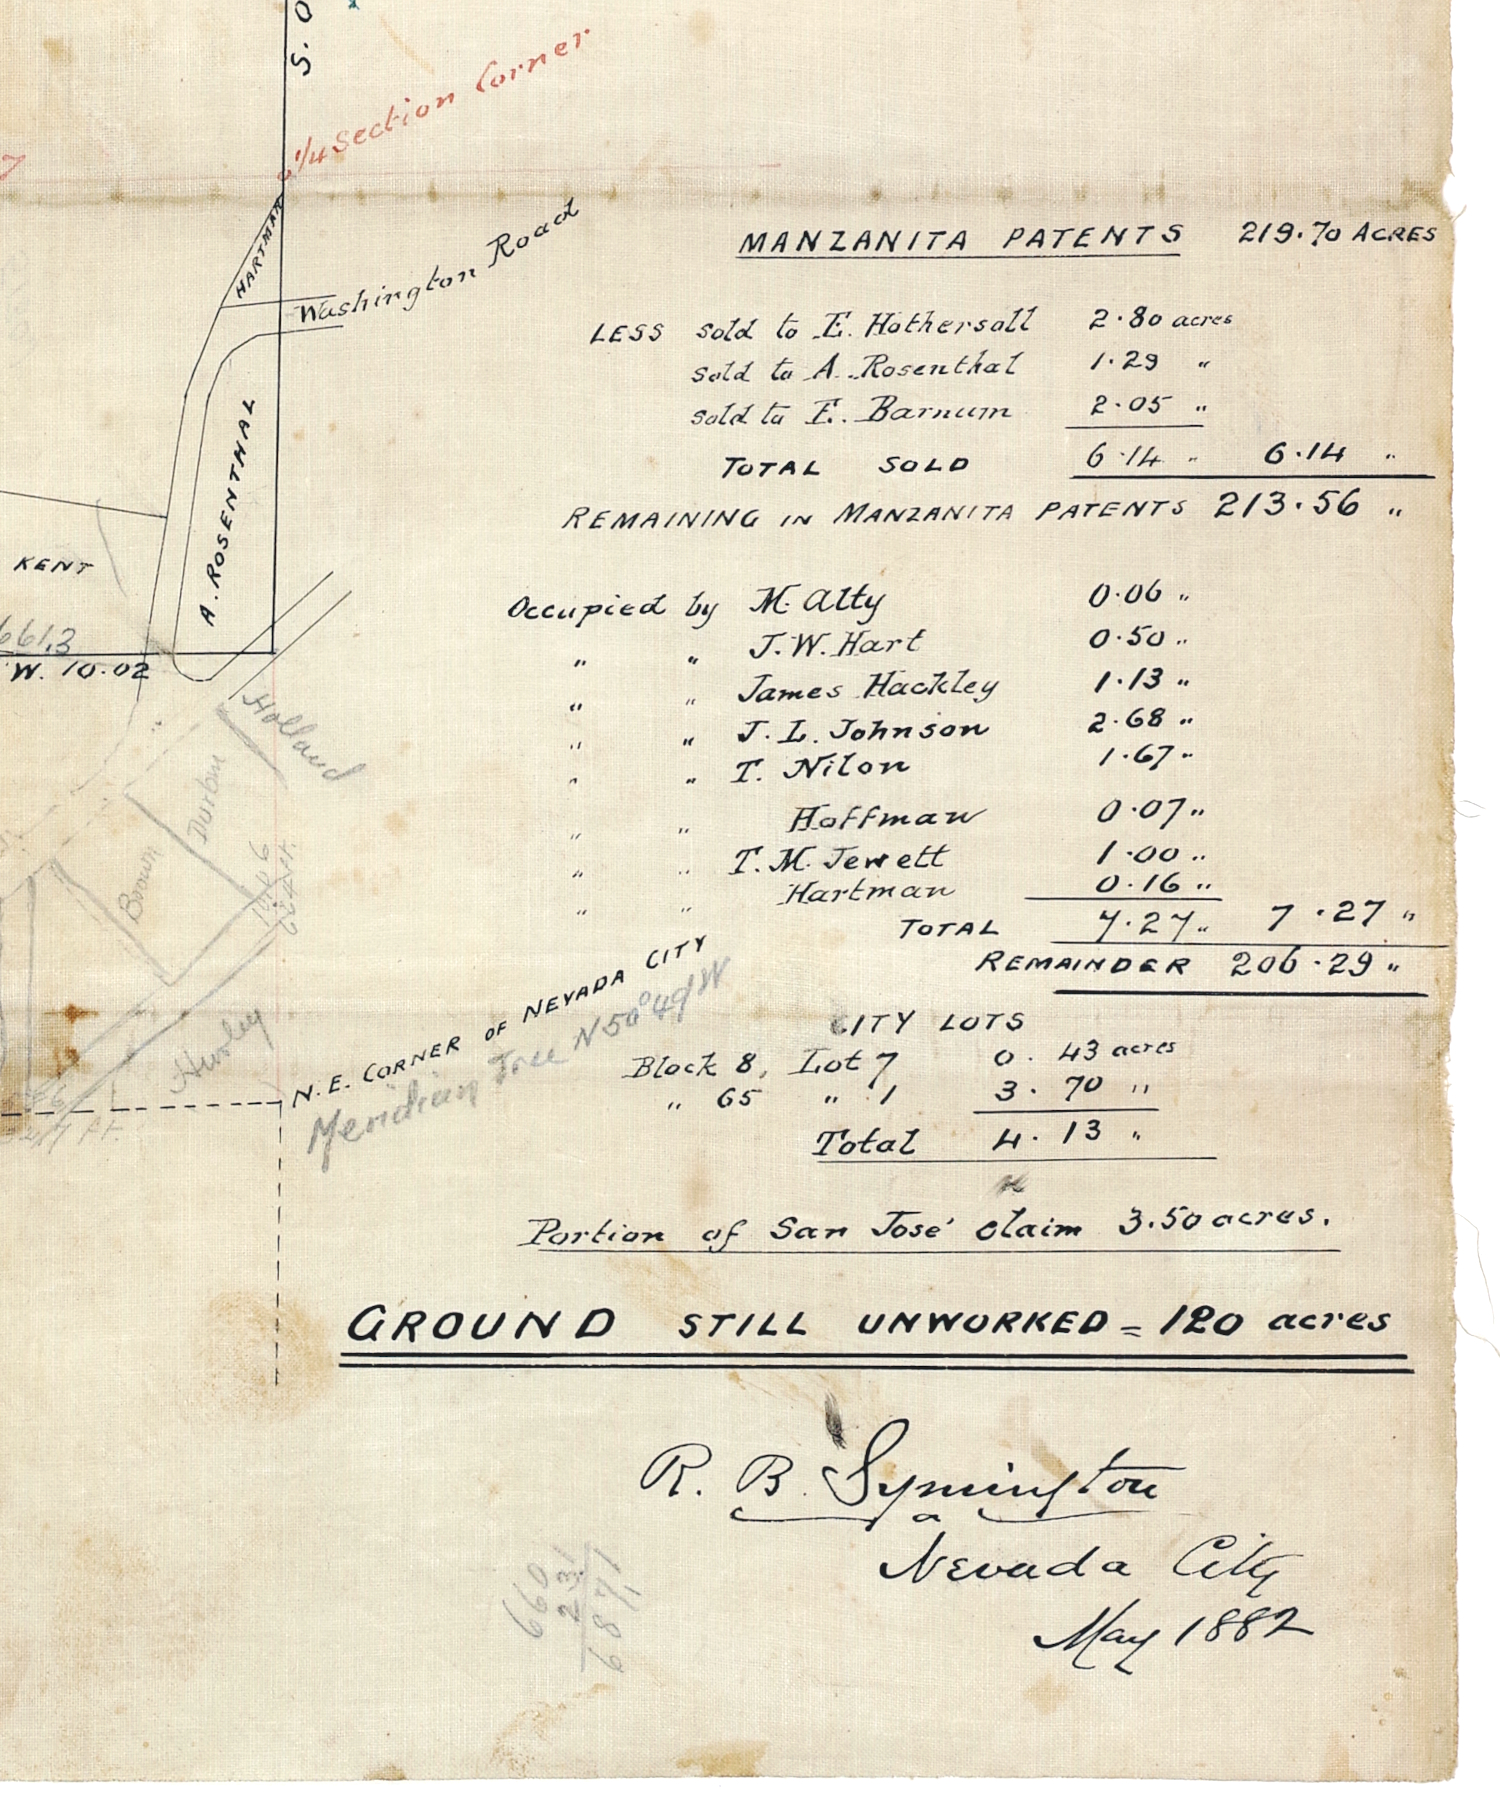 S. O
1/4 Section Corner
7
HARTMAN
Washington Road
MANZANITA PATENTS 219.70 ACRES
LESS sold to E. Hothersall 2.80 acres
sold to A. Rosenthal 1.29 "
sold to E. Barnum 2.05 "
TOTAL SOLD 6.14 " 6.14 "
REMAINING IN MANZANITA PATENTS 213.56 "
A. ROSENTHAL
KENT
661.3
W. 10.02
Occupied by M. Alty 0.06 "
" " J. W. Hart 0.50 "
" " James Hackley 1.13 "
" " J. L. Johnson 2.68 "
" " T. Nilon 1.67 "
" " Hoffman 0.07 "
" " T. M. Jewett 1.00 "
" " Hartman 0.16 "
TOTAL 7.27 " 7.27 "
REMAINDER 206.29 "
Holland
Durban
Brown
Hurley
N.E. CORNER OF NEVADA CITY
Meridian Tree N 50° 49' W
CITY LOTS
Block 8, Lot 7 0.43 acres
" 65 " 1 3.70 "
Total 4.13 "
Portion of San José claim 3.50 acres.
GROUND STILL UNWORKED = 120 acres
R. B. Symington
Nevada City
May 1882
660
231
6871